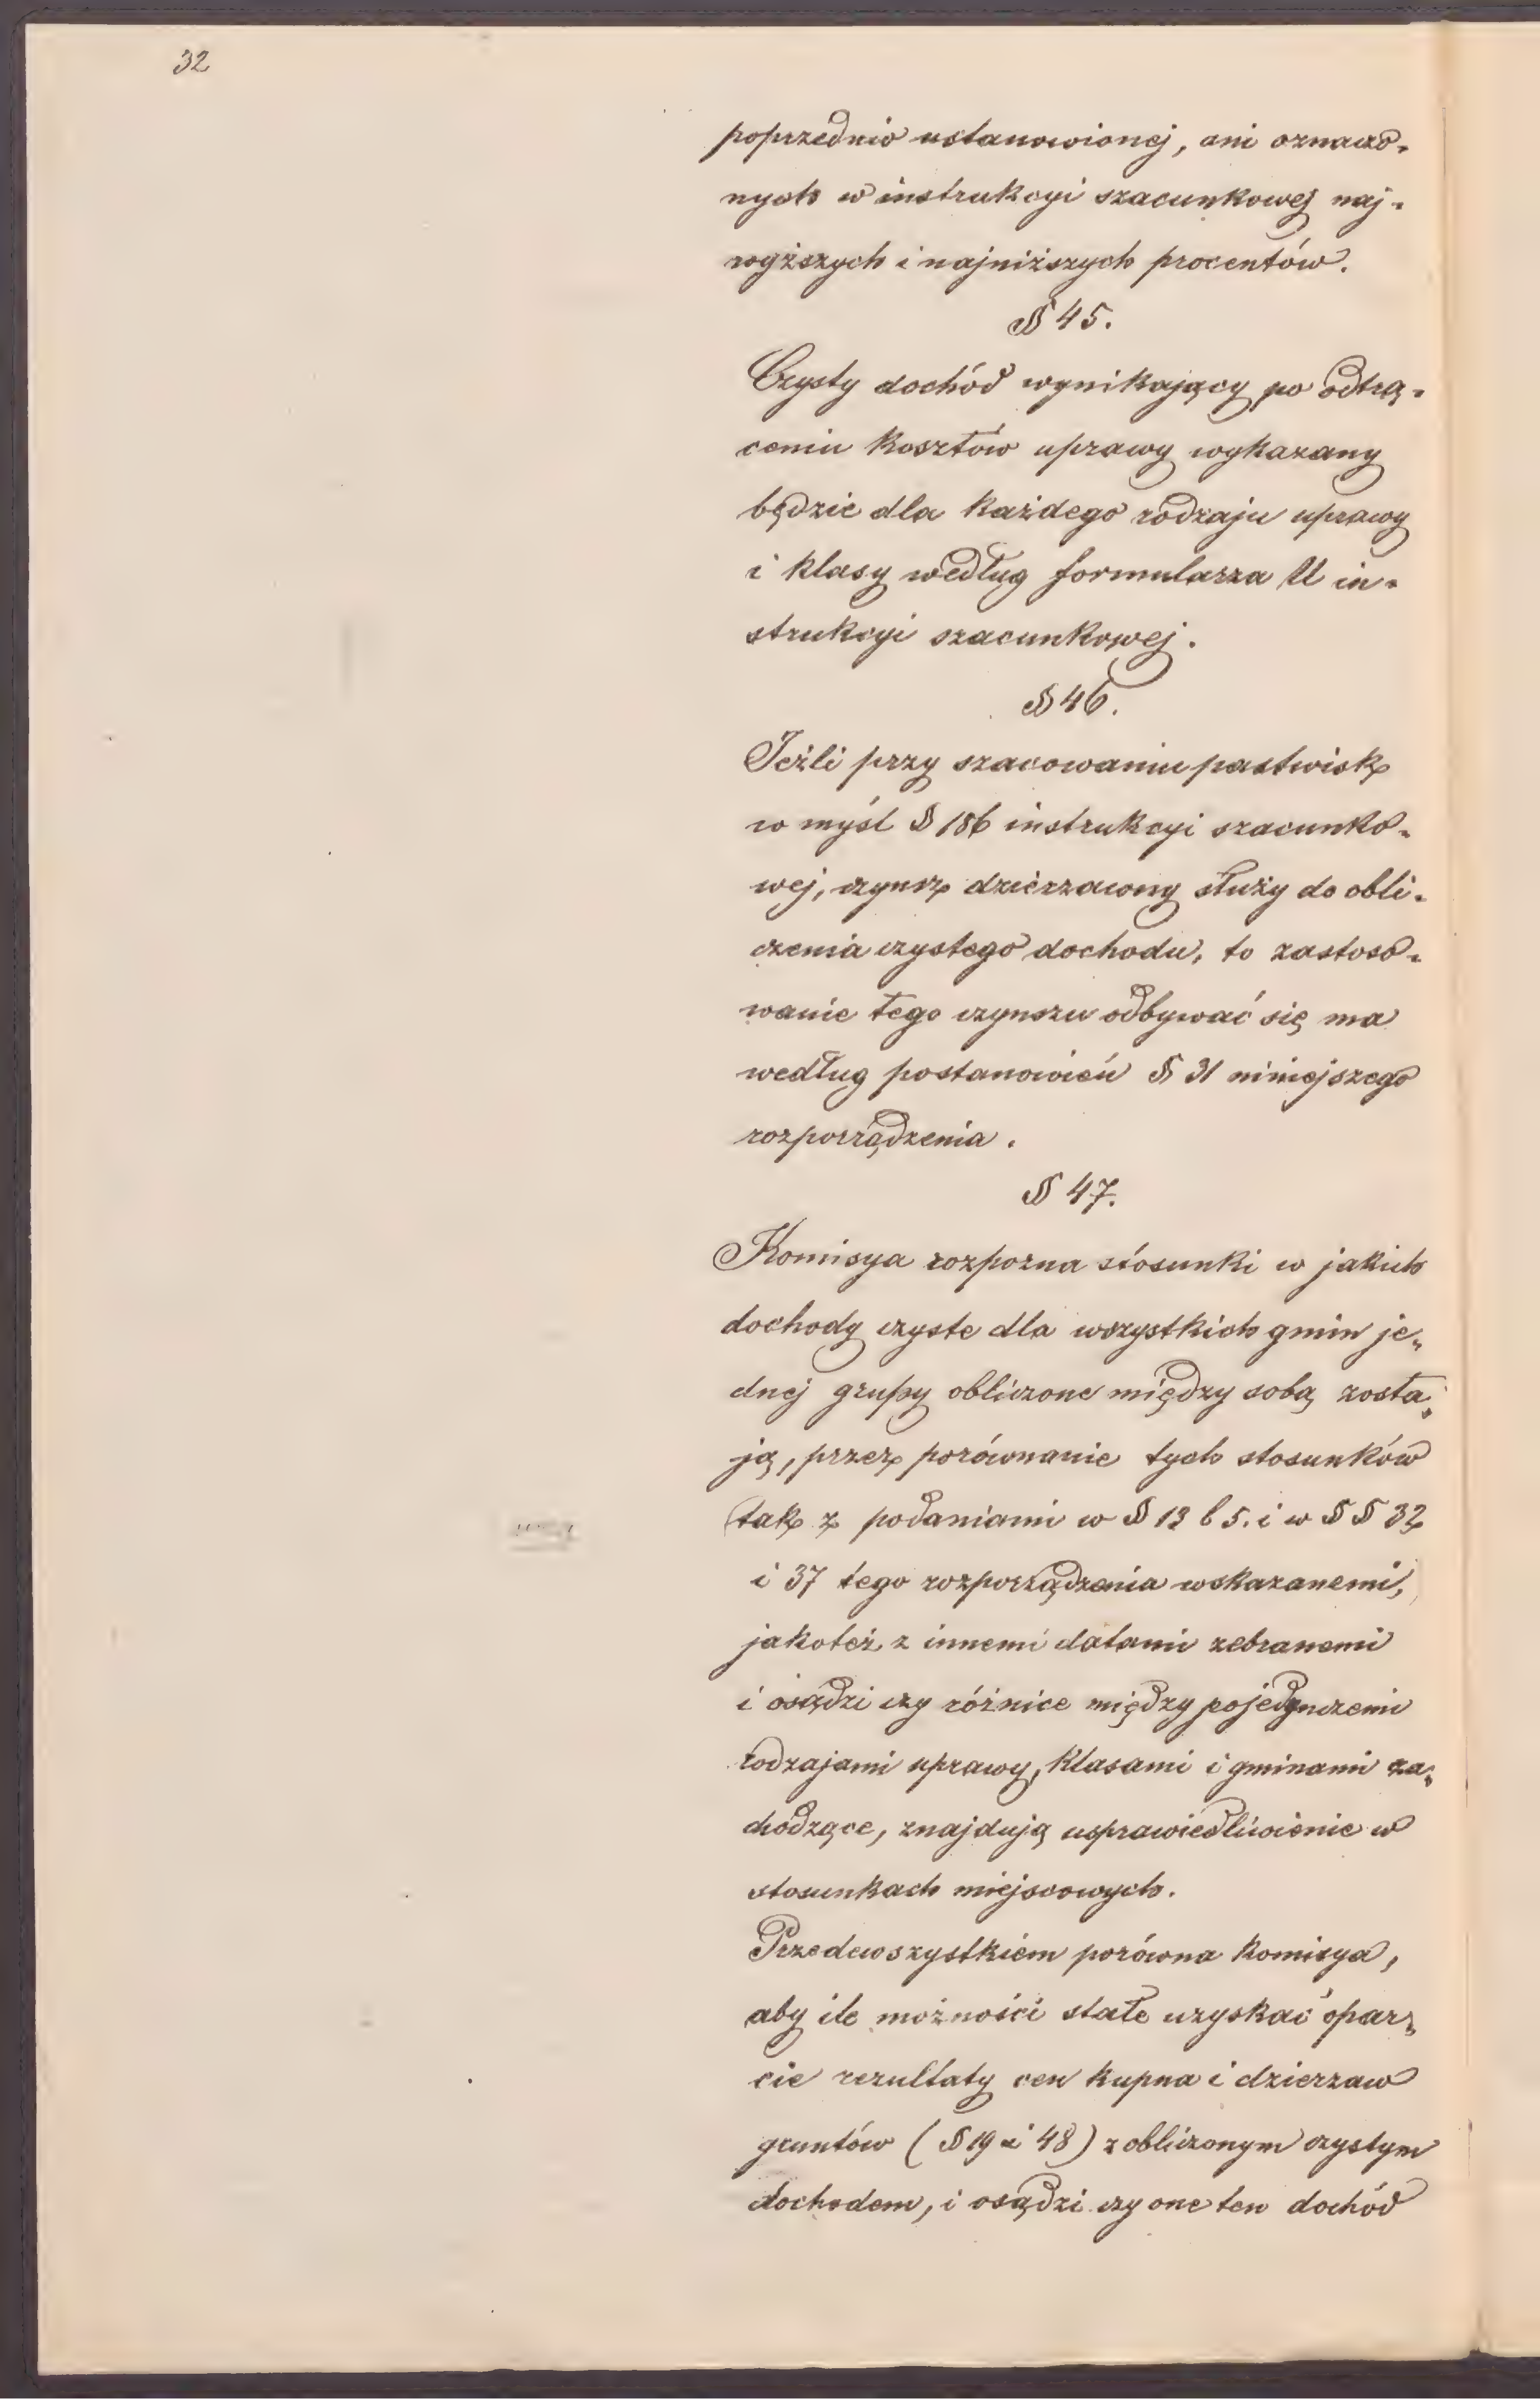 32
poprzednio ustanowionej, ani oznaczo-
nych w instrukcyi szacunkowej naj-
wyższych i najniższych procentów.
§ 45.
Czysty dochód wynikający po odtrą-
ceniu kosztów uprawy wykazany
będzie dla każdego rodzaju uprawy
i klasy według formularza U in-
strukcyi szacunkowej.
§ 46.
Jeżli przy szacowaniu pastwisk
w myśl § 186 instrukcyi szacunko-
wej, czynsz dzierzawny służy do obli-
czenia czystego dochodu, to zastoso-
wanie tego czynszu odbywać się ma
według postanowień § 31 niniejszego
rozporządzenia.
§ 47.
Komisya rozpozna stosunki w jakich
dochody czyste dla wszystkich gmin je-
dnej grupy obliczone między sobą zosta-
ją, przez porównanie tych stosunków
tak z podaniami w § 13 l 5. i w § § 32
i 37 tego rozporządzenia wskazanemi,
jakoteż z innemi datami zebranemi
i osądzi czy różnice między pojedynczemi
rodzajami uprawy, klasami i gminami za-
chodzące, znajdują usprawiedliwienie w
stosunkach miejscowych.
Przedewszystkiem porówna komisya,
aby ile możności stałe uzyskać opar-
cie rezultaty cen kupna i dzierzaw
gruntów (§ 19 i 48) z obliczonym czystym
dochodem, i osądzi czy one ten dochód